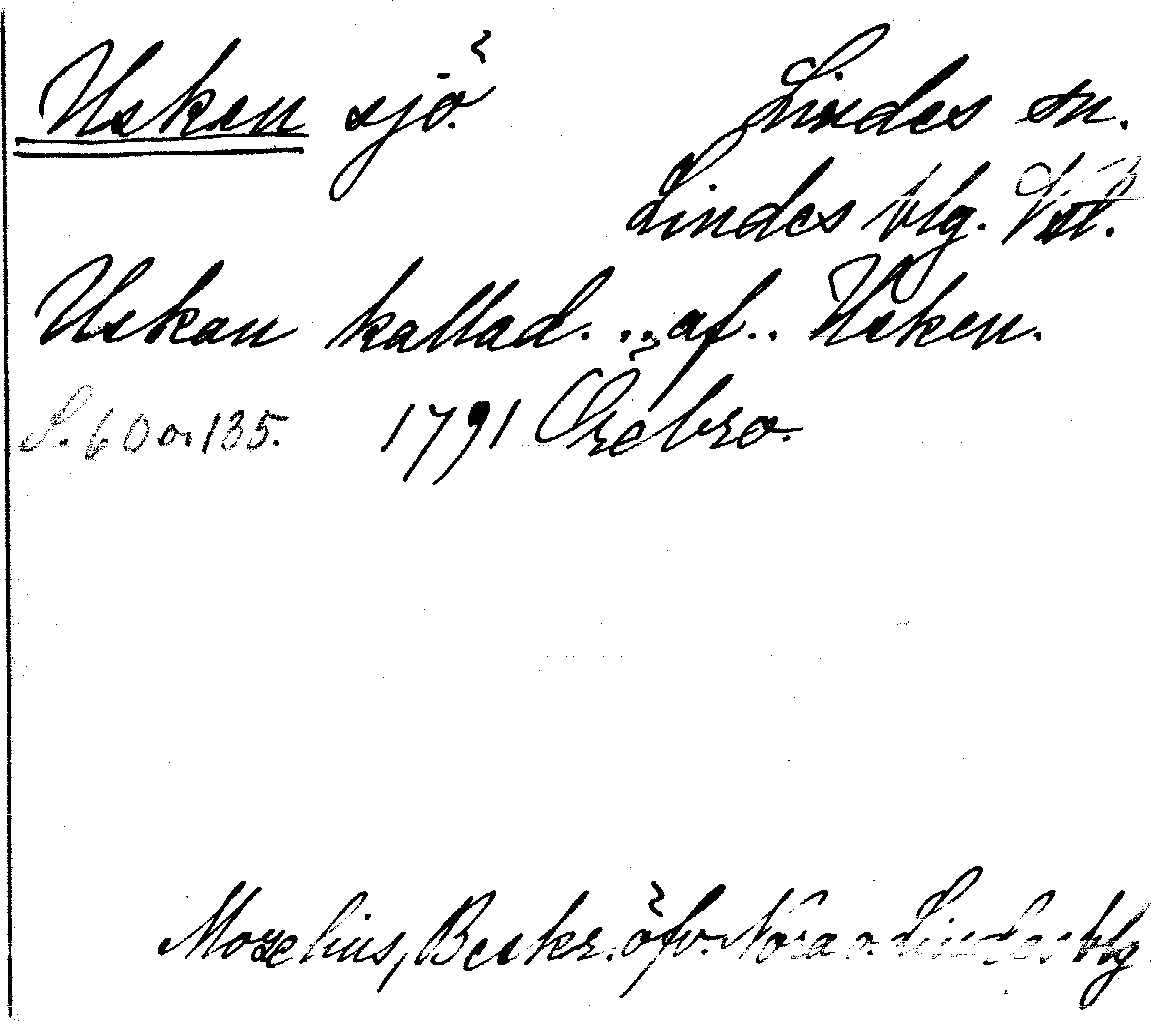 Usken sjö.
Lindes sn.
Lindes blg. Vstl.
Uskan kallad. .. af.. Usken.
S. 60 o. 135. 1791 Örebro.
Morelius, Beskr. öfv. Nora o. Lindes blg